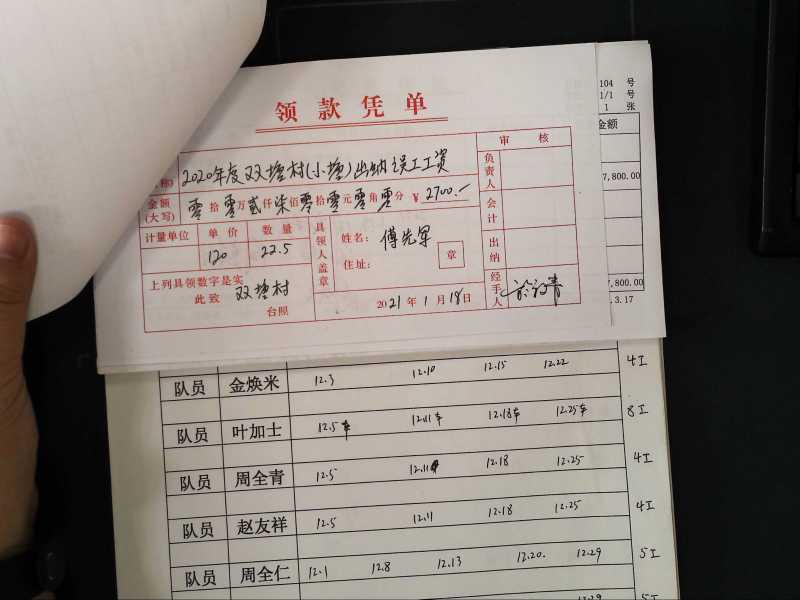 领款凭单
104 号
1/1 号
1 张
金额
7,800.00
7,800.00
.3.17
审核
称) 2020年度双塘村(小塘)出纳误工工资
负责人
金额(大写) 零拾零万贰仟柒佰零拾零元零角零分 ¥2700.—
会计
计量单位 单价 数量
120 22.5
具领人盖章
姓名: 傅先军
住址:
章
出纳
上列具领数字是实
此致 双塘村
台照
2021年1月18日
经手人
队员 金焕米 12.3 12.10 12.15 12.22 4工
队员 叶加士 12.5车 12.11车 12.18车 12.25车 8工
队员 周全青 12.5 12.11 12.18 12.25 4工
队员 赵友祥 12.5 12.11 12.18 12.25 4工
队员 周全仁 12.1 12.8 12.13 12.20. 12.29 5工
12.29 5工